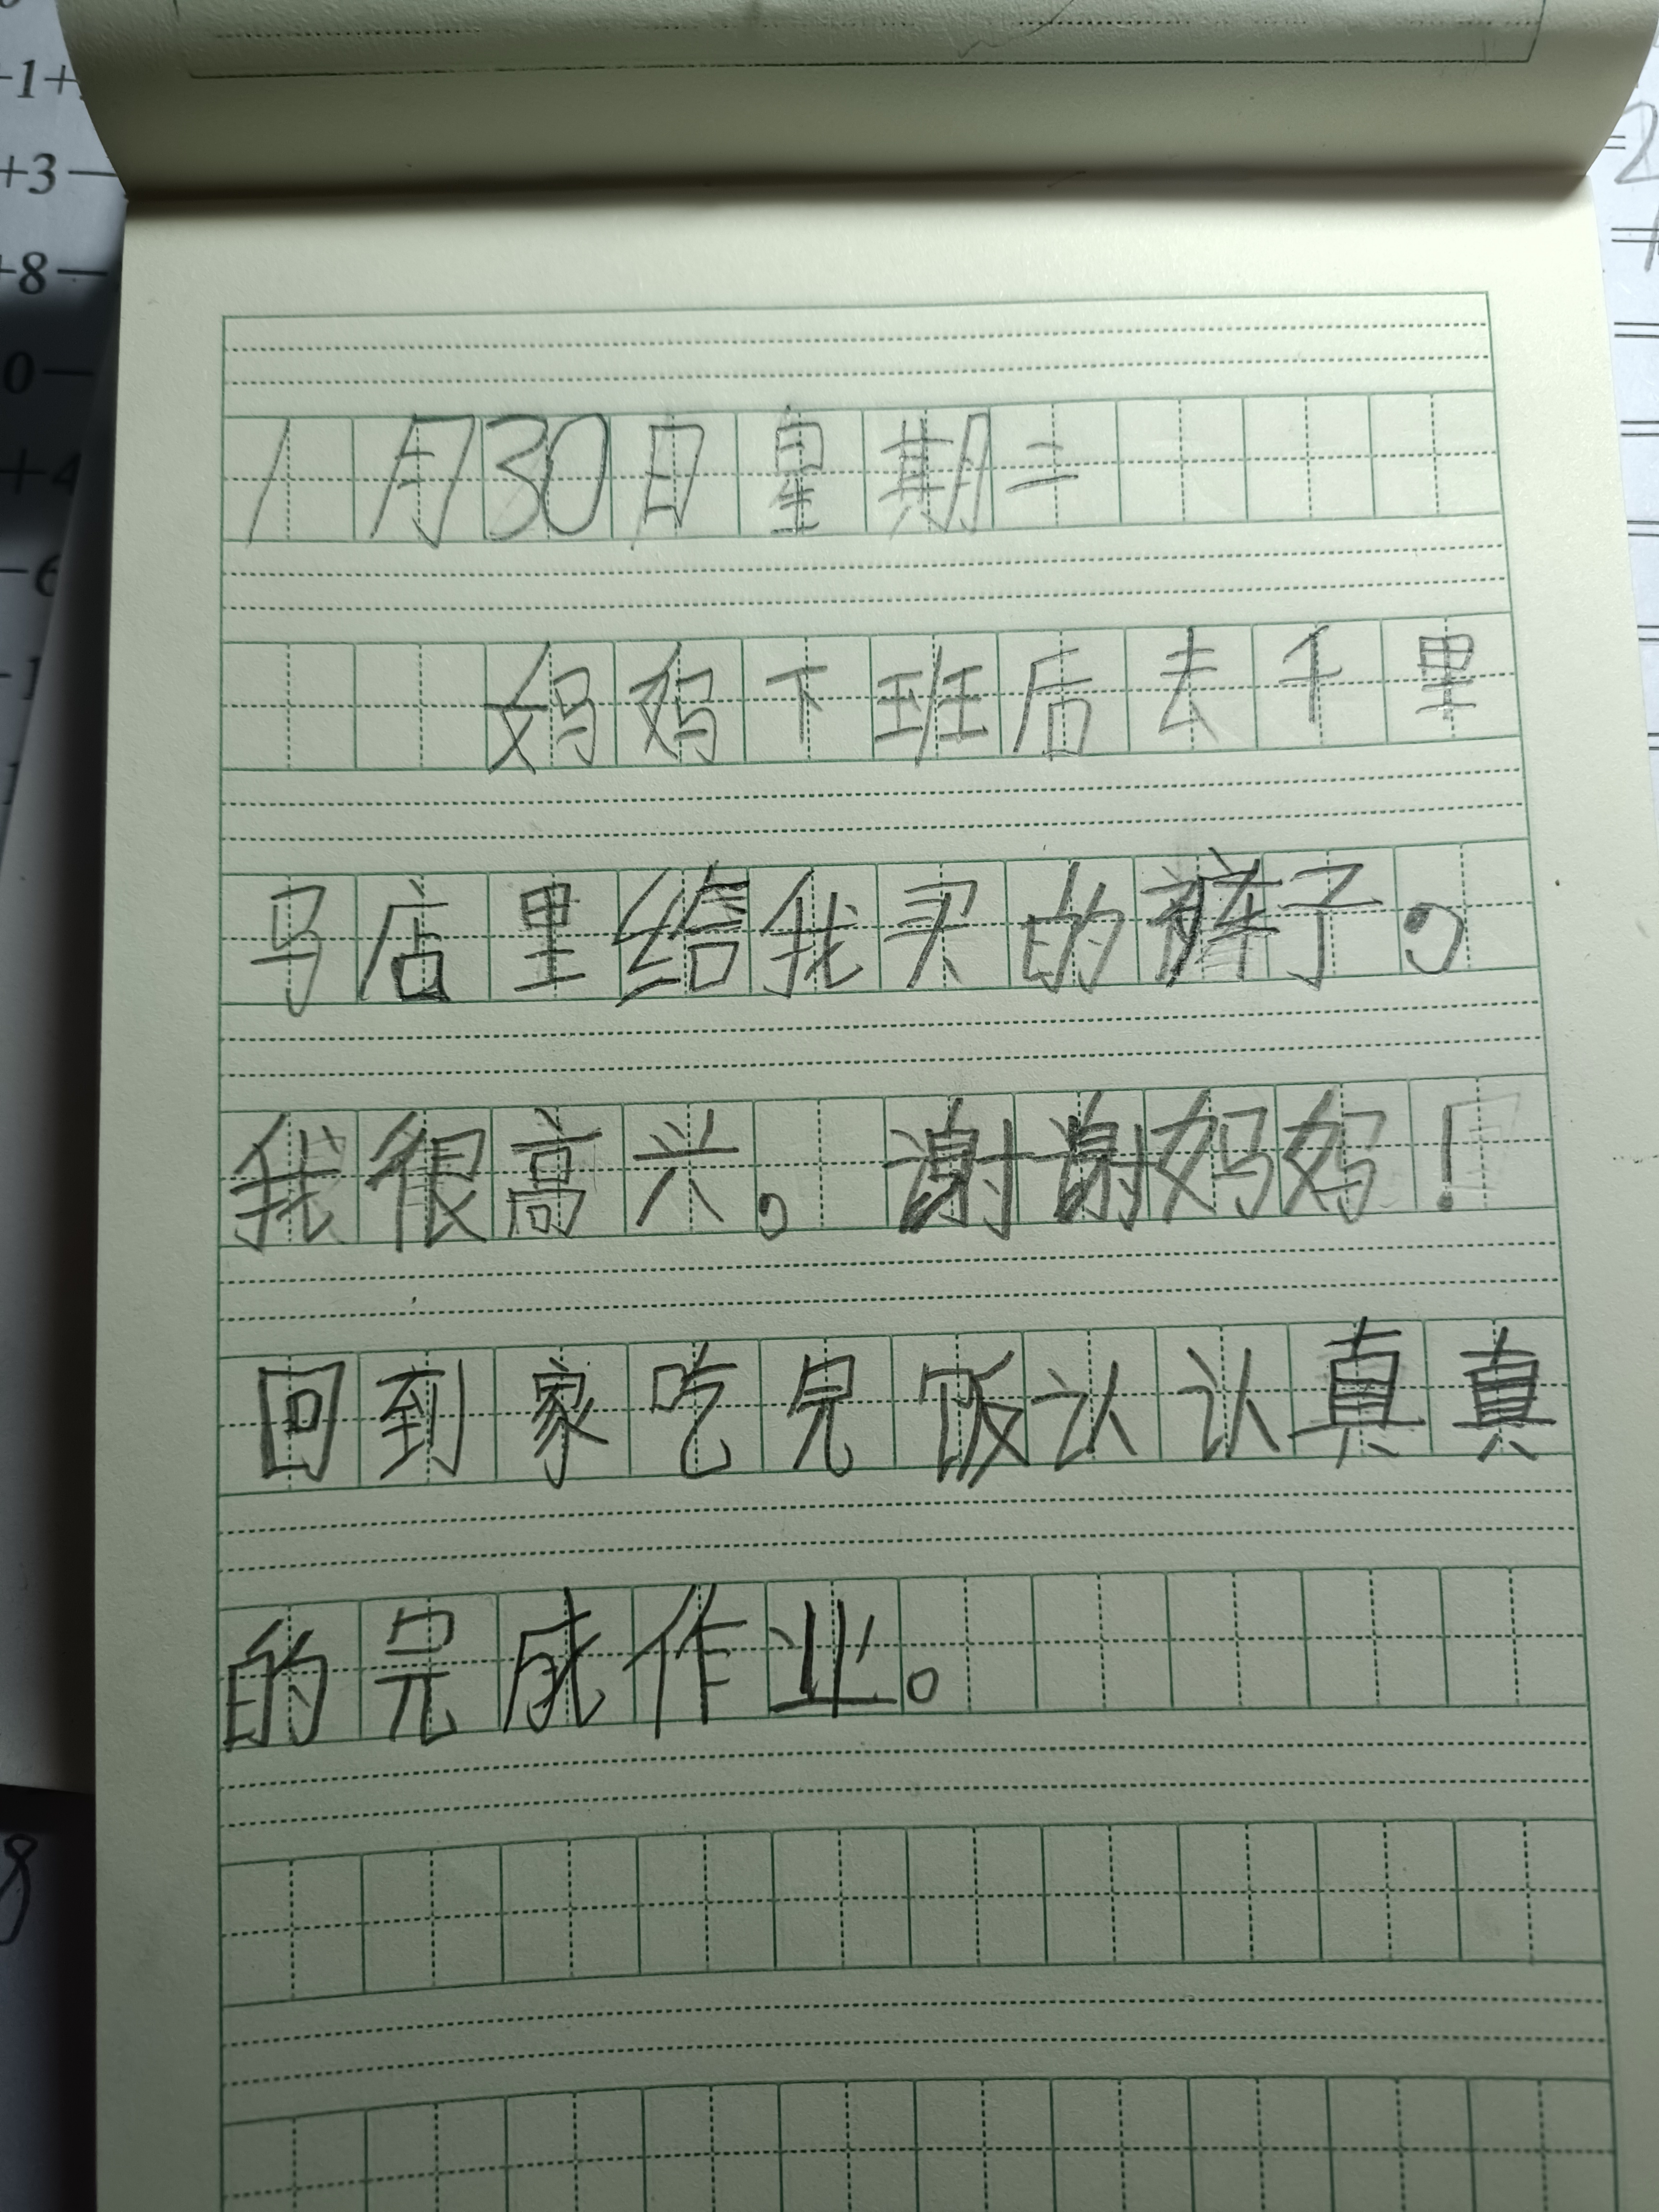 1月30日星期二
妈妈下班后去千里
马店里给我买的裤子。
我很高兴。谢谢妈妈！
回到家吃完饭认认真真
的完成作业。
+1+
+3-
+8-
0-
+4
-6
-1
8